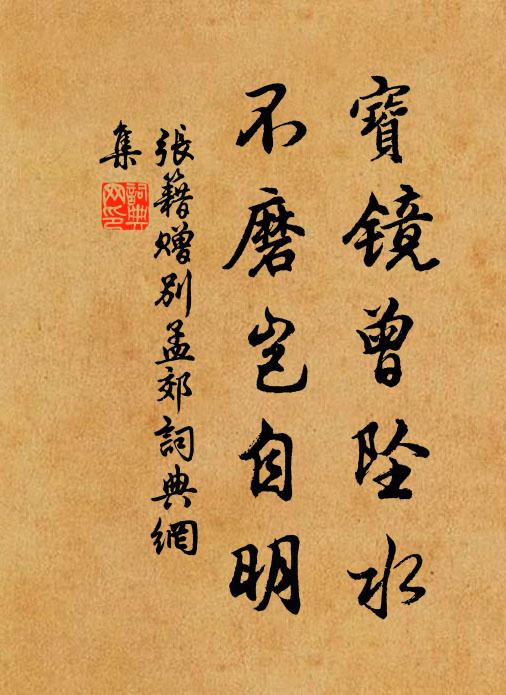 寶鏡曾墜水
不磨豈自明
張籍贈別孟郊詞典網
集
詞典
网印